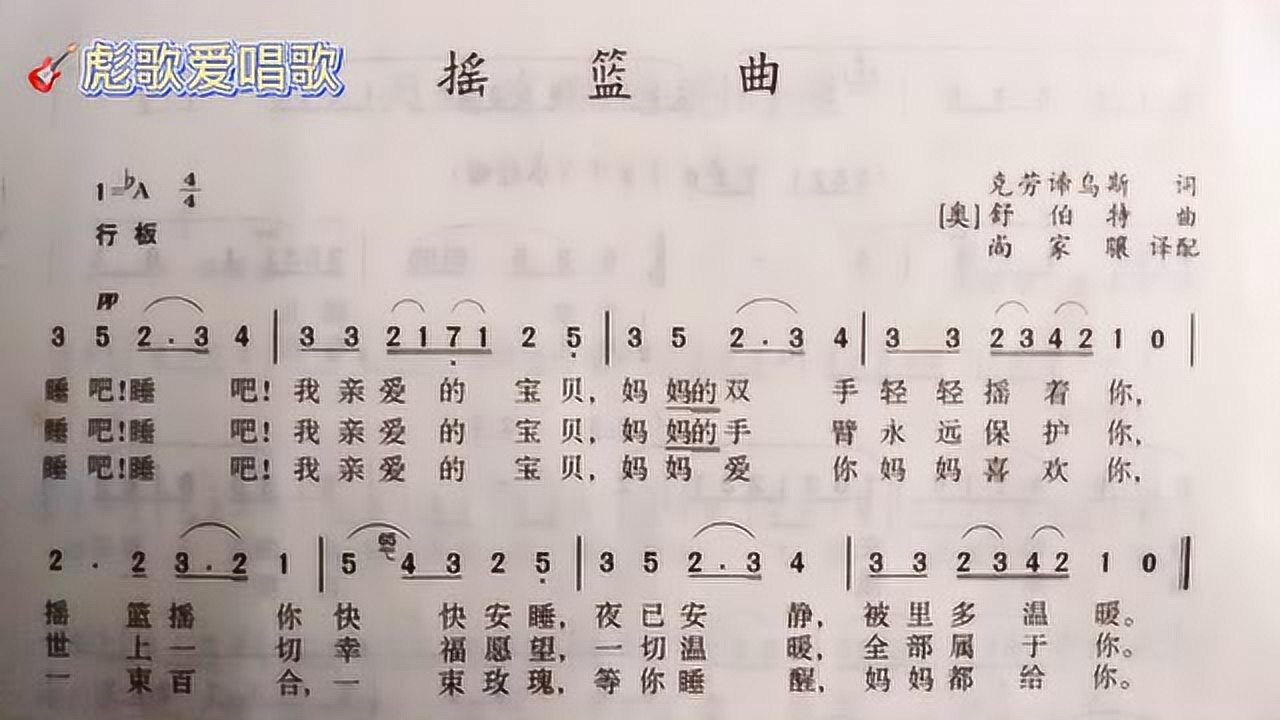 彪歌爱唱歌
摇 篮 曲
1=♭A 4/4
克劳谛乌斯 词
行板
[奥]舒伯特 曲
尚家骧 译配
pp
3 5 2·3 4 | 3 3 2171 2 5 | 3 5 2·3 4 | 3 3 2342 1 0 |
睡吧!睡 吧!我亲爱的宝贝,妈妈的双 手轻轻摇着你,
睡吧!睡 吧!我亲爱的宝贝,妈妈的手 臂永远保护你,
睡吧!睡 吧!我亲爱的宝贝,妈妈爱 你妈妈喜欢你,
2 · 2 3·2 1 | 5 4 3 2 5 | 3 5 2·3 4 | 3 3 2342 1 0 ‖
摇 篮摇 你快 快安睡,夜已安 静,被里多温暖。
世 上一 切幸 福愿望,一切温 暖,全部属于你。
一 束百 合,一 束玫瑰,等你睡 醒,妈妈都给你。